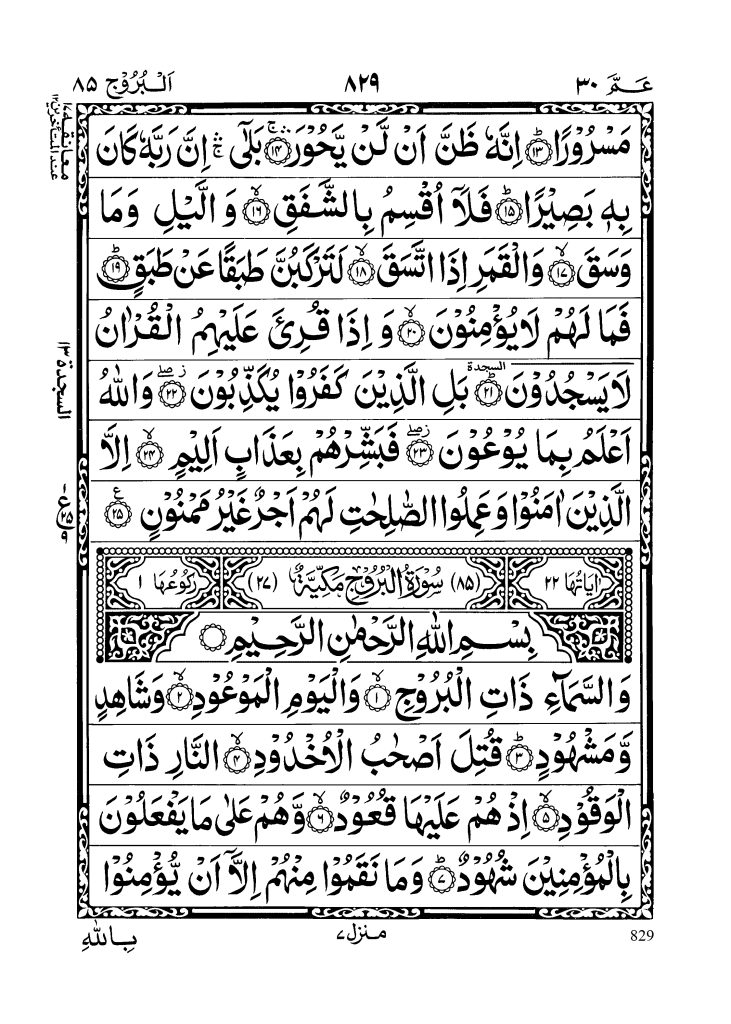 عَمَّ ۳۰
۸۲۹
اَلْبُرُوْج ۸۵
معانقه ۱۷
عند المتاخرین ۱۲
مَسْرُوْرًا ﴿۱۳﴾ اِنَّهٗ ظَنَّ اَنْ لَّنْ يَّحُوْرَ ﴿۱۴﴾ ۛۚ بَلٰۤى ۛۚ اِنَّ رَبَّهٗ كَانَ
بِهٖ بَصِيْرًا ﴿۱۵﴾ؕ فَلَاۤ اُقْسِمُ بِالشَّفَقِ ﴿۱۶﴾ۙ وَ الَّيْلِ وَمَا
وَسَقَ ﴿۱۷﴾ۙ وَالْقَمَرِ اِذَا اتَّسَقَ ﴿۱۸﴾ۙ لَتَرْكَبُنَّ طَبَقًا عَنْ طَبَقٍ ﴿۱۹﴾ؕ
فَمَا لَهُمْ لَا يُؤْمِنُوْنَ ﴿۲۰﴾ۙ وَ اِذَا قُرِئَ عَلَيْهِمُ الْقُرْاٰنُ
لَا يَسْجُدُوْنَ ﴿۲۱﴾ؕ السجدة بَلِ الَّذِيْنَ كَفَرُوْا يُكَذِّبُوْنَ ﴿۲۲﴾ زۖ وَاللّٰهُ
السجدة ۱۳
اَعْلَمُ بِمَا يُوْعُوْنَ ﴿۲۳﴾ زۖ فَبَشِّرْهُمْ بِعَذَابٍ اَلِيْمٍ ﴿۲۴﴾ۙ اِلَّا
الَّذِيْنَ اٰمَنُوْا وَعَمِلُوا الصّٰلِحٰتِ لَهُمْ اَجْرٌ غَيْرُ مَمْنُوْنٍ ﴿۲۵﴾ ع
ع ۲۵ ۹
اٰيَاتُهَا ۲۲
(۸۵) سُوْرَةُ الْبُرُوْجِ مَكِّيَّةٌ (۲۷)
رُكُوْعُهَا ۱
بِسْمِ اللّٰهِ الرَّحْمٰنِ الرَّحِيْمِ
وَالسَّمَآءِ ذَاتِ الْبُرُوْجِ ﴿۱﴾ۙ وَالْيَوْمِ الْمَوْعُوْدِ ﴿۲﴾ۙ وَشَاهِدٍ
وَّمَشْهُوْدٍ ﴿۳﴾ؕ قُتِلَ اَصْحٰبُ الْاُخْدُوْدِ ﴿۴﴾ۙ النَّارِ ذَاتِ
الْوَقُوْدِ ﴿۵﴾ۙ اِذْ هُمْ عَلَيْهَا قُعُوْدٌ ﴿۶﴾ۙ وَّهُمْ عَلٰى مَا يَفْعَلُوْنَ
بِالْمُؤْمِنِيْنَ شُهُوْدٌ ﴿۷﴾ؕ وَمَا نَقَمُوْا مِنْهُمْ اِلَّاۤ اَنْ يُّؤْمِنُوْا
829
منزل ۷
بِاللّٰهِ